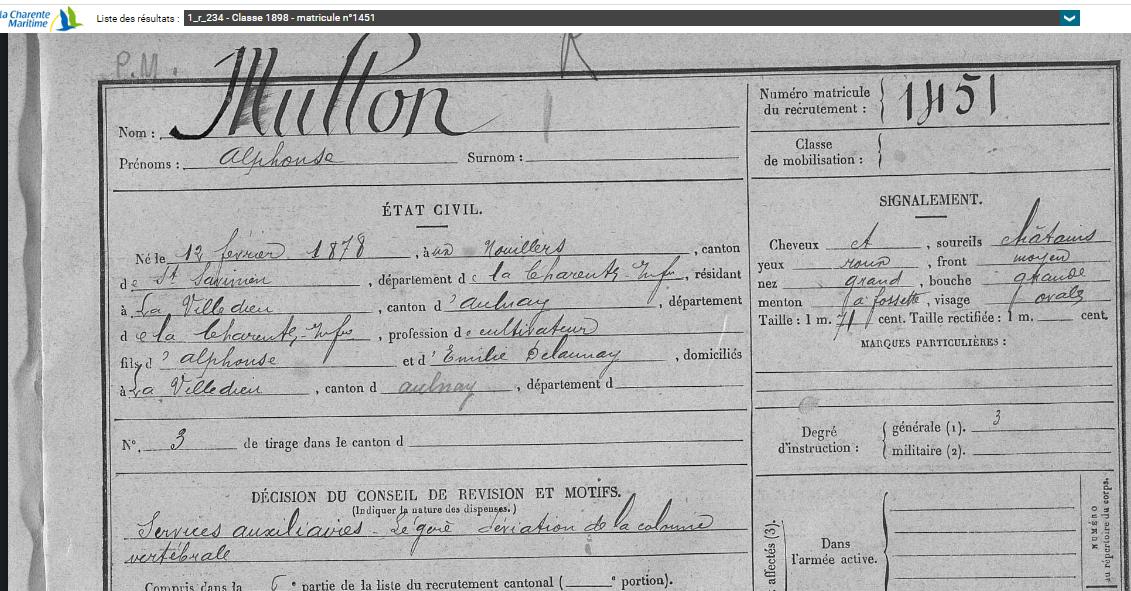 la Charente
Maritime
Liste des résultats : 1_r_234 - Classe 1898 - matricule n°1451
P.M.
Nom : Mullon
Prénoms : Alphonse Surnom :
Numéro matricule
du recrutement : 1451
Classe
de mobilisation :
ÉTAT CIVIL.
Né le 12 février 1878, à Nouillers, canton
de St Savinien, département de la Charente-Infre, résidant
à La Villedieu, canton d'Aulnay, département
de la Charente-Infre, profession de cultivateur
fils d'Alphonse et d'Emilie Delaunay, domiciliés
à La Villedieu, canton d aulnay, département d
N° 3 de tirage dans le canton d
SIGNALEMENT.
Cheveux et, sourcils châtains
yeux roux, front moyen
nez grand, bouche grande
menton à fossette, visage ovale
Taille : 1 m. 71 cent. Taille rectifiée : 1 m. cent.
MARQUES PARTICULIÈRES :
Degré
d'instruction :
générale (1). 3
militaire (2).
DÉCISION DU CONSEIL DE REVISION ET MOTIFS.
(Indiquer la nature des dispenses.)
Services auxiliaires - Légère déviation de la colonne
vertébrale
Compris dans la 6e partie de la liste du recrutement cantonal ( e portion).
affectés (3).
Dans
l'armée active.
NUMÉRO
au répertoire du corps.